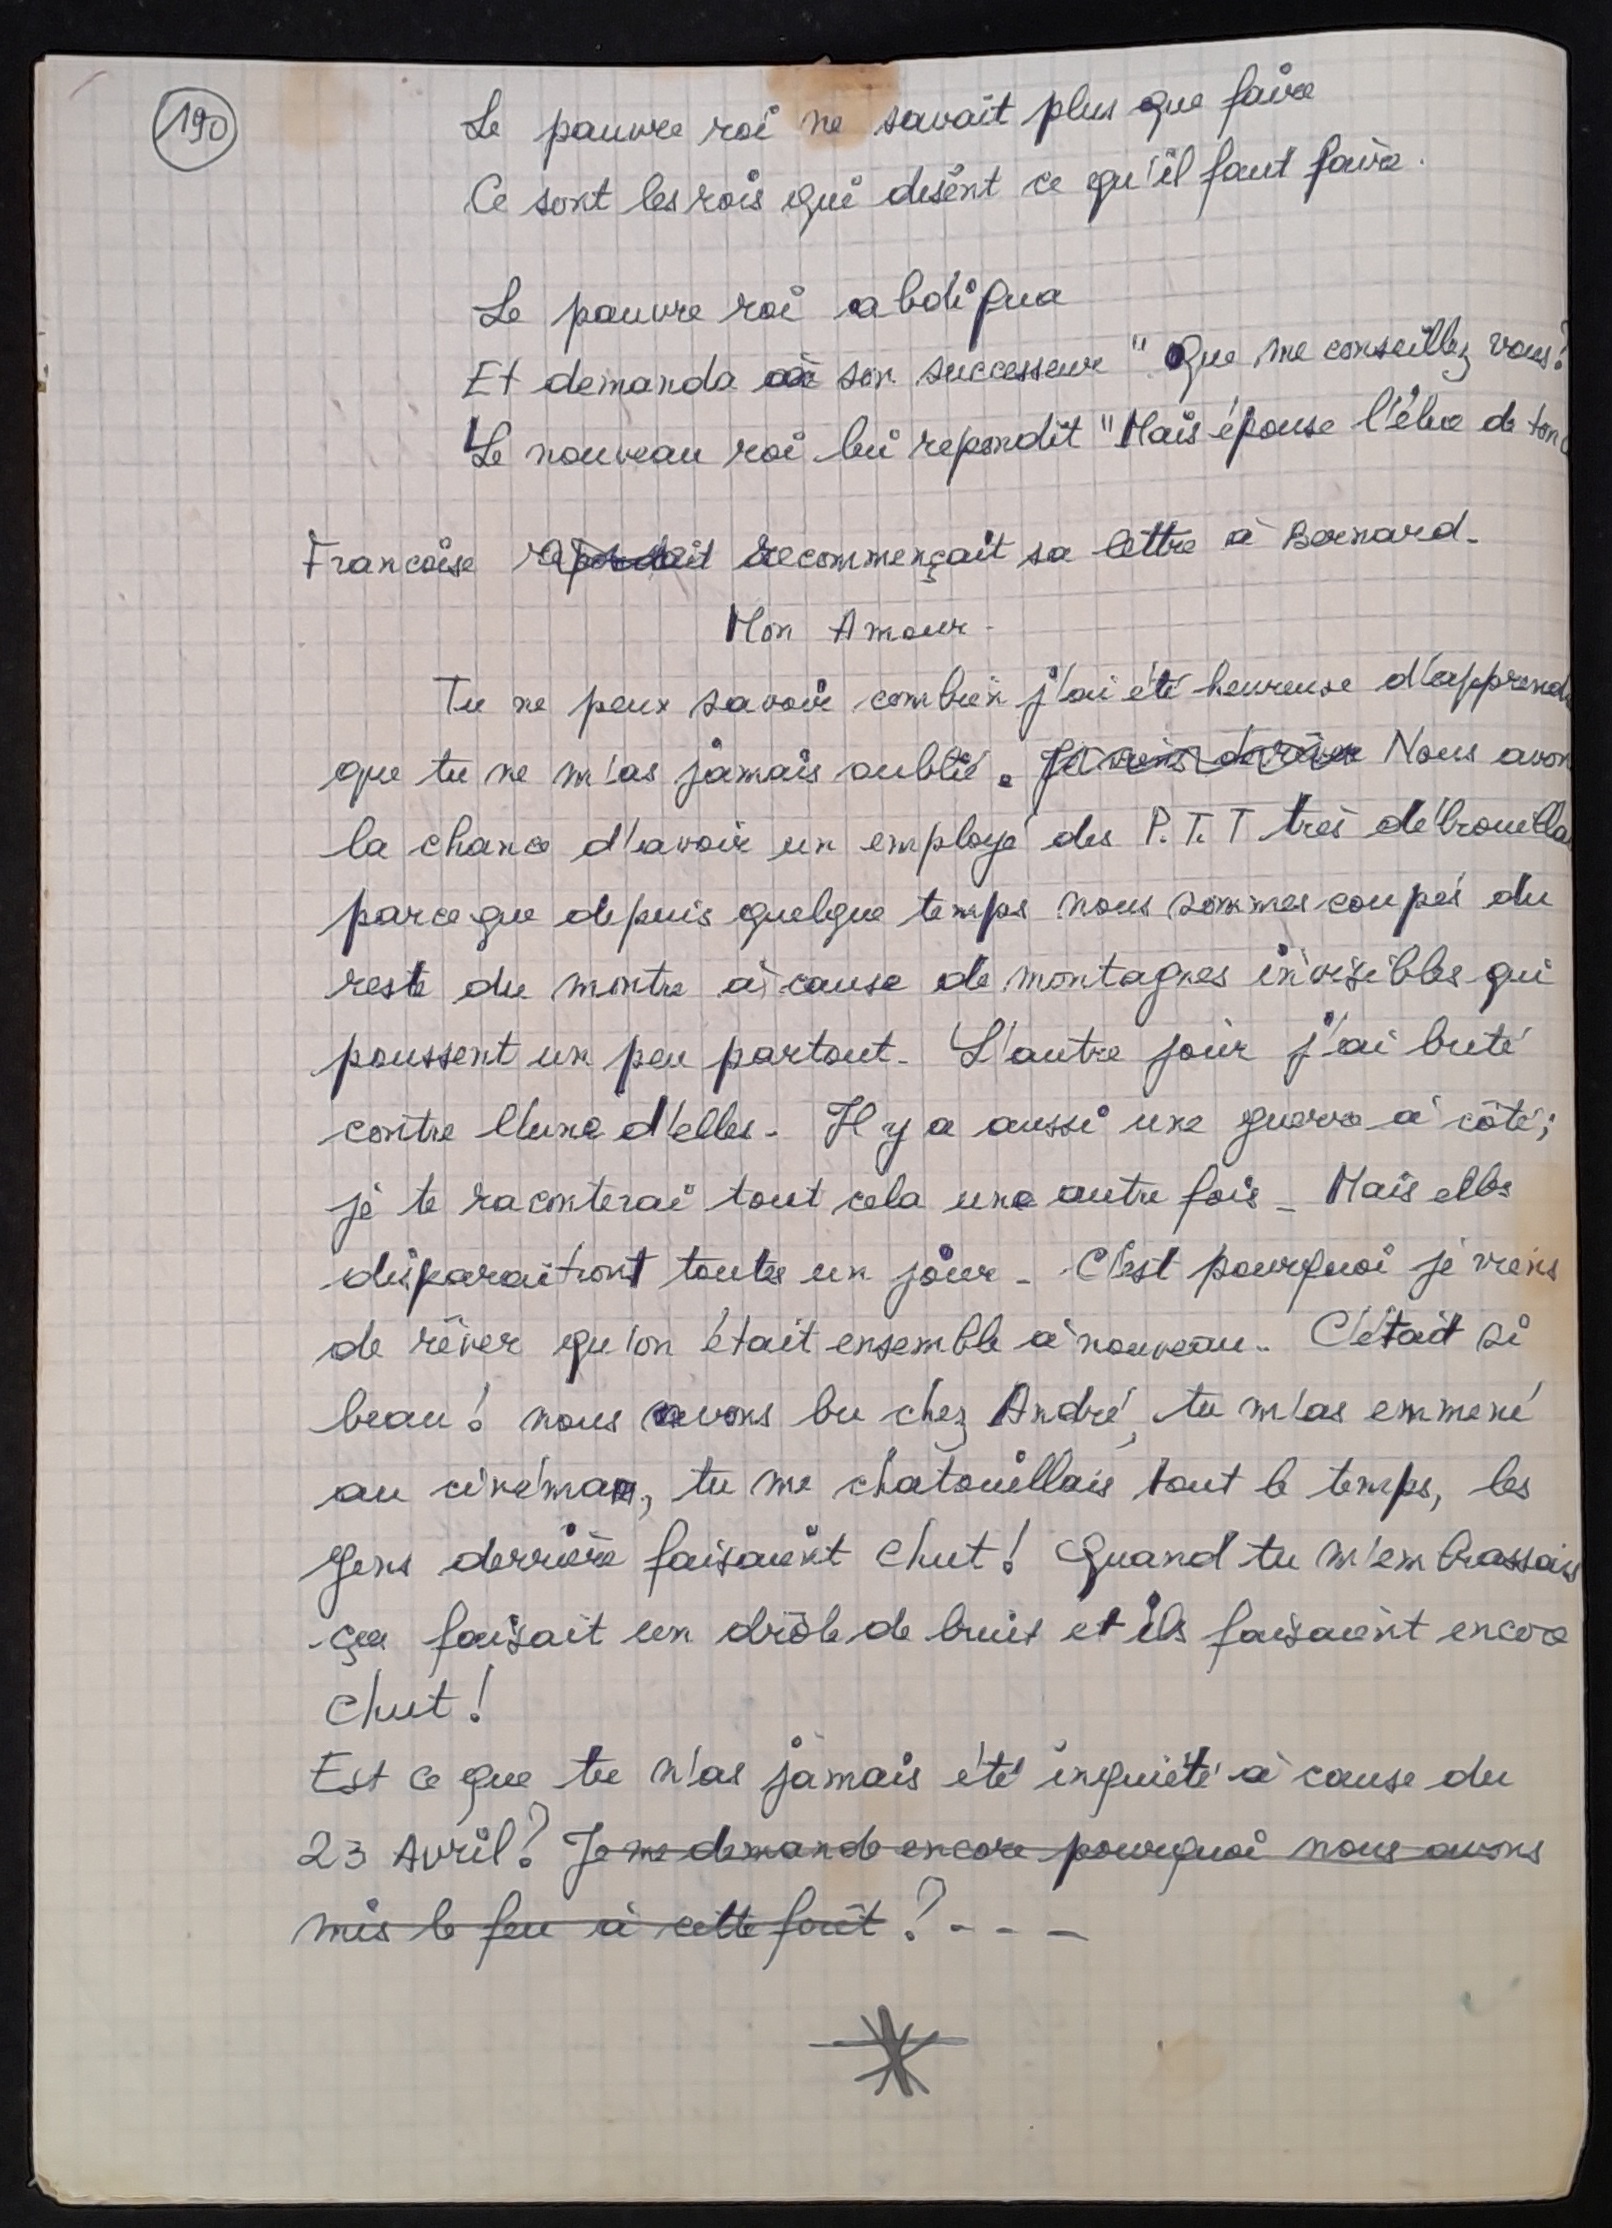 190
Le pauvre roi ne savait plus que faire
Ce sont les rois qui disent ce qu'il faut faire.
Le pauvre roi abdiqua
Et demanda à son successeur "Que me conseillez vous?
Le nouveau roi lui repondit "Mais épouse l'élue de ton
Francoise repondait recommençait sa lettre à Bernard-
Mon Amour-
Tu ne peux savoir combien j'ai été heureuse d'apprend
que tu ne m'as jamais oublié. Je viens de rêver Nous avon
la chance d'avoir un employé des P.T.T très débrouilla
parceque depuis quelque temps nous sommes coupés du
reste du montre à cause de montagnes invisibles qui
poussent un peu partout- L'autre jour j'ai buté
contre l'une d'elles- Il y a aussi une guerre à côté;
je te raconterai tout cela une autre fois- Mais elles
disparaitront toutes un jour- C'est pourquoi je viens
de rêver qu'on était ensemble à nouveau.. C'était si
beau! nous avons bu chez André, tu m'as emmené
au cinéma, tu me chatouillais tout le temps, les
gens derrière faisaient chut! Quand tu m'embrassais
ça faisait un drôle de bruit et ils faisaient encore
chut!
Est ce que tu n'as jamais été inquiété à cause du
23 Avril? Je me demande encore pourquoi nous avons
mis le feu à cette forêt?---